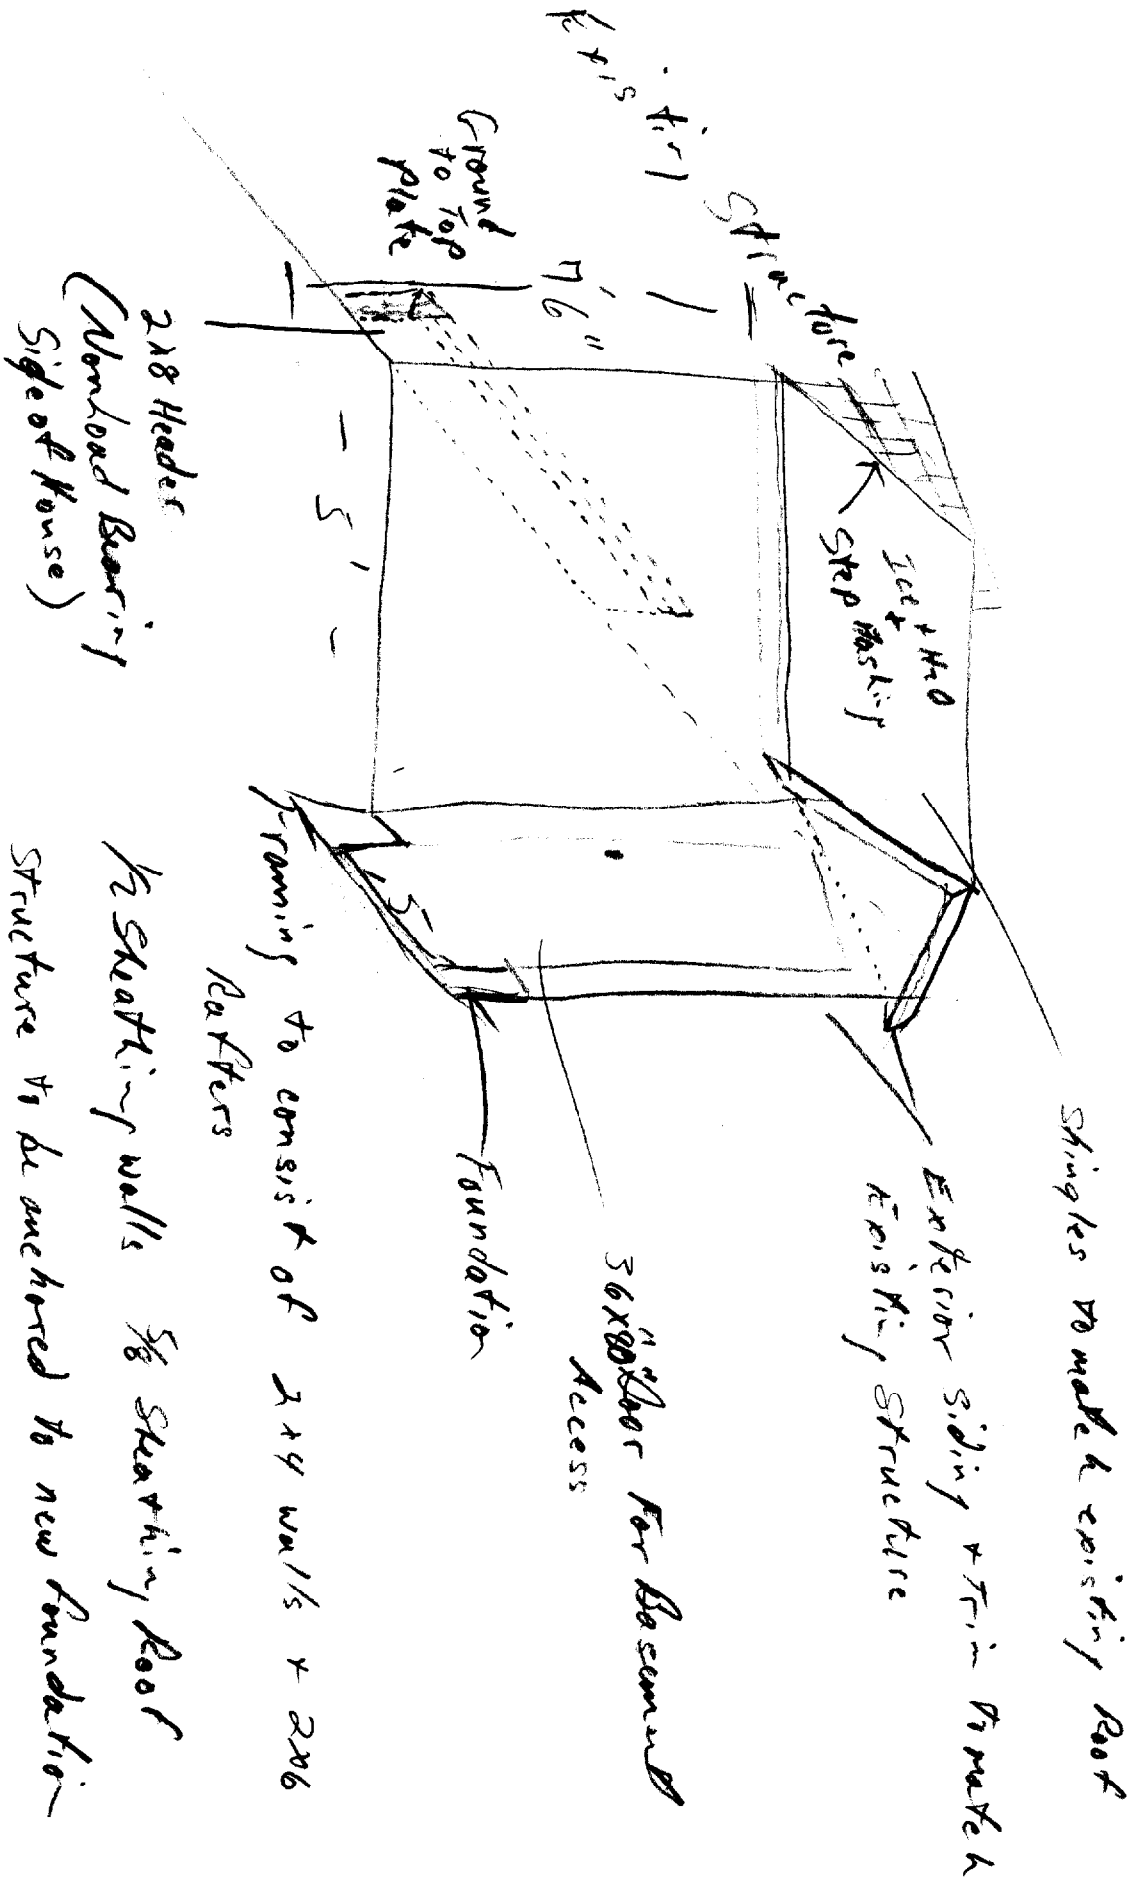 Existing Structure
Ground
to Top
plate
7'6"
Ice + H2O
+
Step Flashing
5'
5'
2x8 Header
(Nonload Bearing
Side of House)
Shingles to match existing Roof
Exterior siding + Trim to match
Existing structure
36"x80" Door For Basement
Access
Foundation
Framing to consist of 2x4 walls + 2x6
Rafters
1/2 Sheathing walls 5/8 Sheathing Roof
Structure to be anchored to new foundation